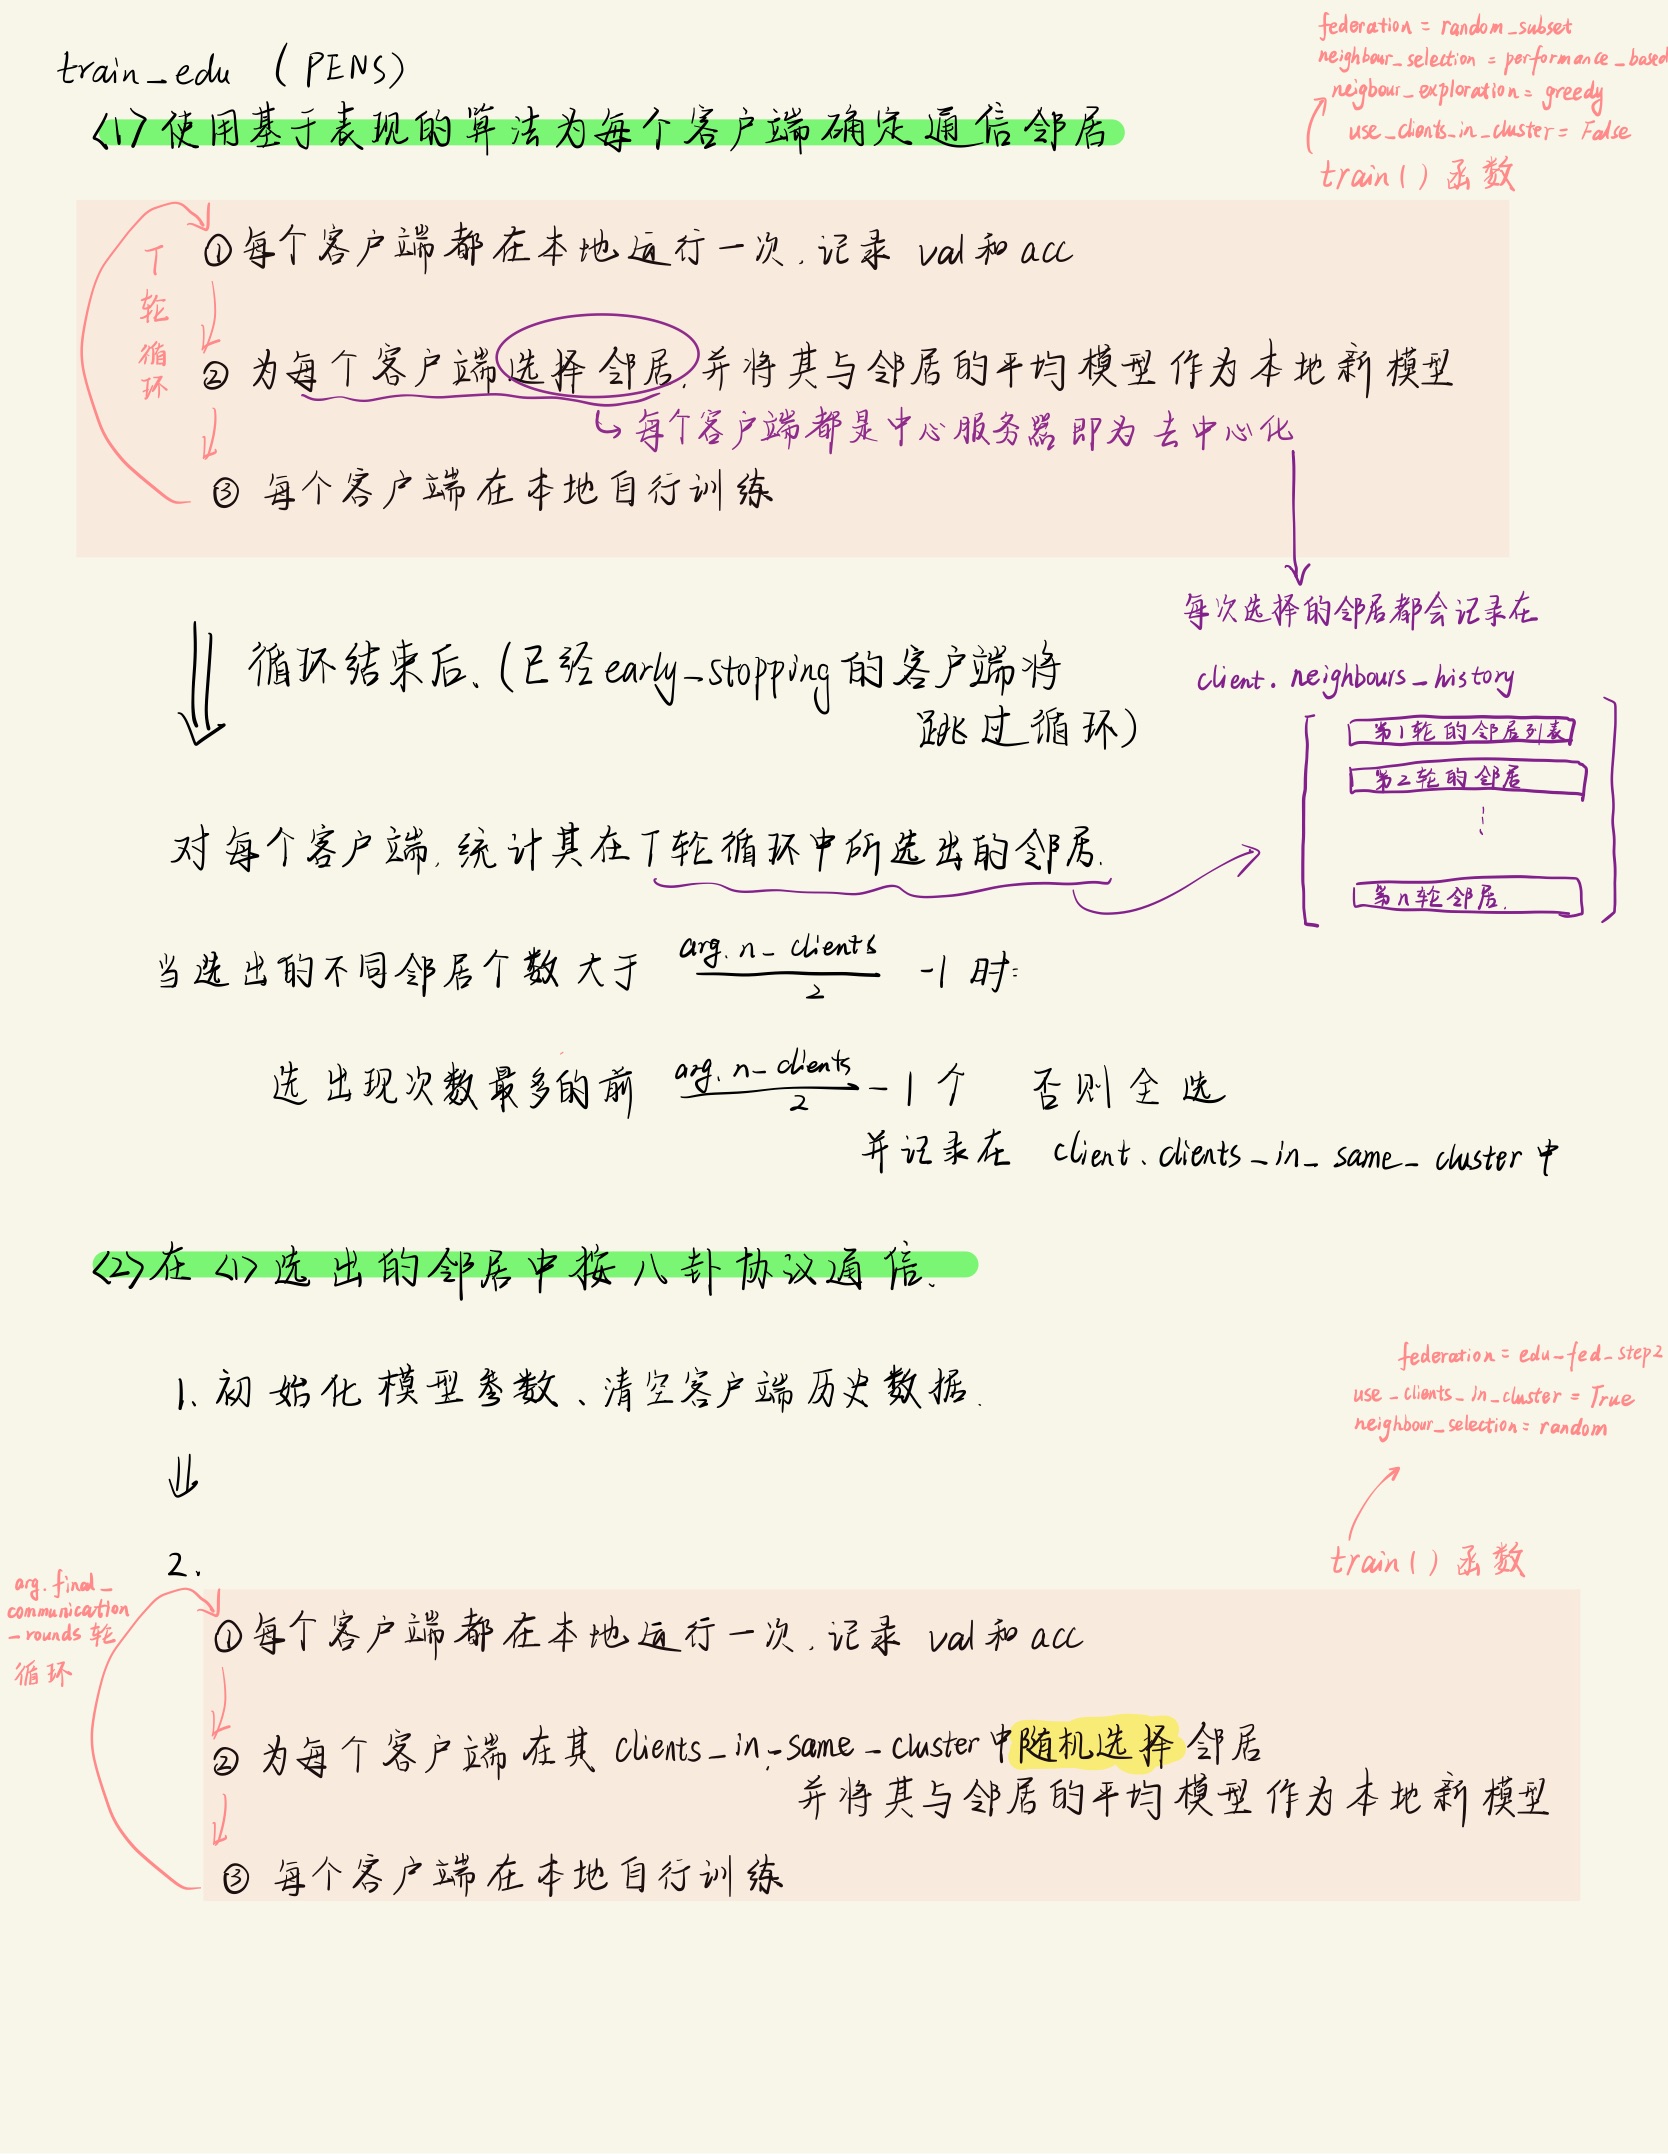 train_edu (PENS)
federation = random_subset
neighbour_selection = performance_based
neigbour_exploration = greedy
use_clients_in_cluster = False
train()函数
<1>使用基于表现的算法为每个客户端确定通信邻居
T
轮
循
环
①每个客户端都在本地运行一次,记录 val和acc
② 为每个客户端选择邻居,并将其与邻居的平均模型作为本地新模型
每个客户端都是中心服务器即为去中心化
③ 每个客户端在本地自行训练
每次选择的邻居都会记录在
client.neighbours_history
第1轮的邻居列表
第2轮的邻居
第n轮邻居.
循环结束后、(已经early_stopping的客户端将
跳过循环)
对每个客户端,统计其在T轮循环中所选出的邻居.
当选出的不同邻居个数大于 arg.n_clients/2 -1时:
选出现次数最多的前 arg.n_clients/2 -1个 否则全选
并记录在 client.clients_in_same_cluster中
<2>在<1>选出的邻居中按八卦协议通信.
1.初始化模型参数、清空客户端历史数据.
federation = edu_fed_step2
use_clients_in_cluster = True
neighbour_selection = random
train()函数
2.
arg.final_
communication
_rounds轮
循环
①每个客户端都在本地运行一次,记录 val和acc
② 为每个客户端在其 clients_in_same_cluster中随机选择邻居
并将其与邻居的平均模型作为本地新模型
③ 每个客户端在本地自行训练